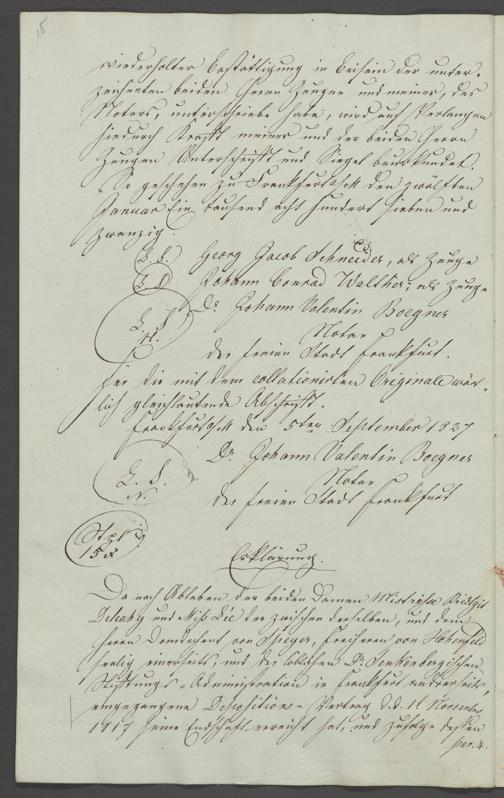 wiederholter Bestättigung in Beisein der unter-
zeichneten beiden Herrn Zeugen und meiner, des
Notars, unterschriebe habe, wird auf Verlangen
hiedurch Kraft meiner und der beiden Herrn
Zeugen Unterschrift und Siegel beurkundet.
So geschehen zu Frankfurt a/M den zwölften
Januar Ein tausend acht hundert sieben und
zwanzig.
L. S. Georg Jacob Schneider, als Zeuge
L. S. Johann Conrad Walther, als Zeuge
Dr. Johann Valentin Boegner
L. S.
N. Notar
der freien Stadt Frankfurt.
Für die mit dem collationirten Originale wör-
lich gleichlautende Abschrift.
Frankfurt a/M den 5ten September 1837
Dr. Johann Valentin Boegner
L. S.
N. Notar
der freien Stadt Frankfurt
Stpl
15 x
Erklärung.
Da nach Ableben der beiden Damen Mistriss Bridget
Delcahy und Miss Lee der zwischen derselben, und dem
Herrn Domdechant von Spiegel, Freiherrn von
seelig einerseits, und der löblichen Dr. Senkenbergischen
Stiftungs-Administration in Frankfurt andrerseits,
eingegangene Depositions-Vertrag d.d. 11 November
1817 seine Endschaft erreicht hat, und zufolge dessen
par. 4.